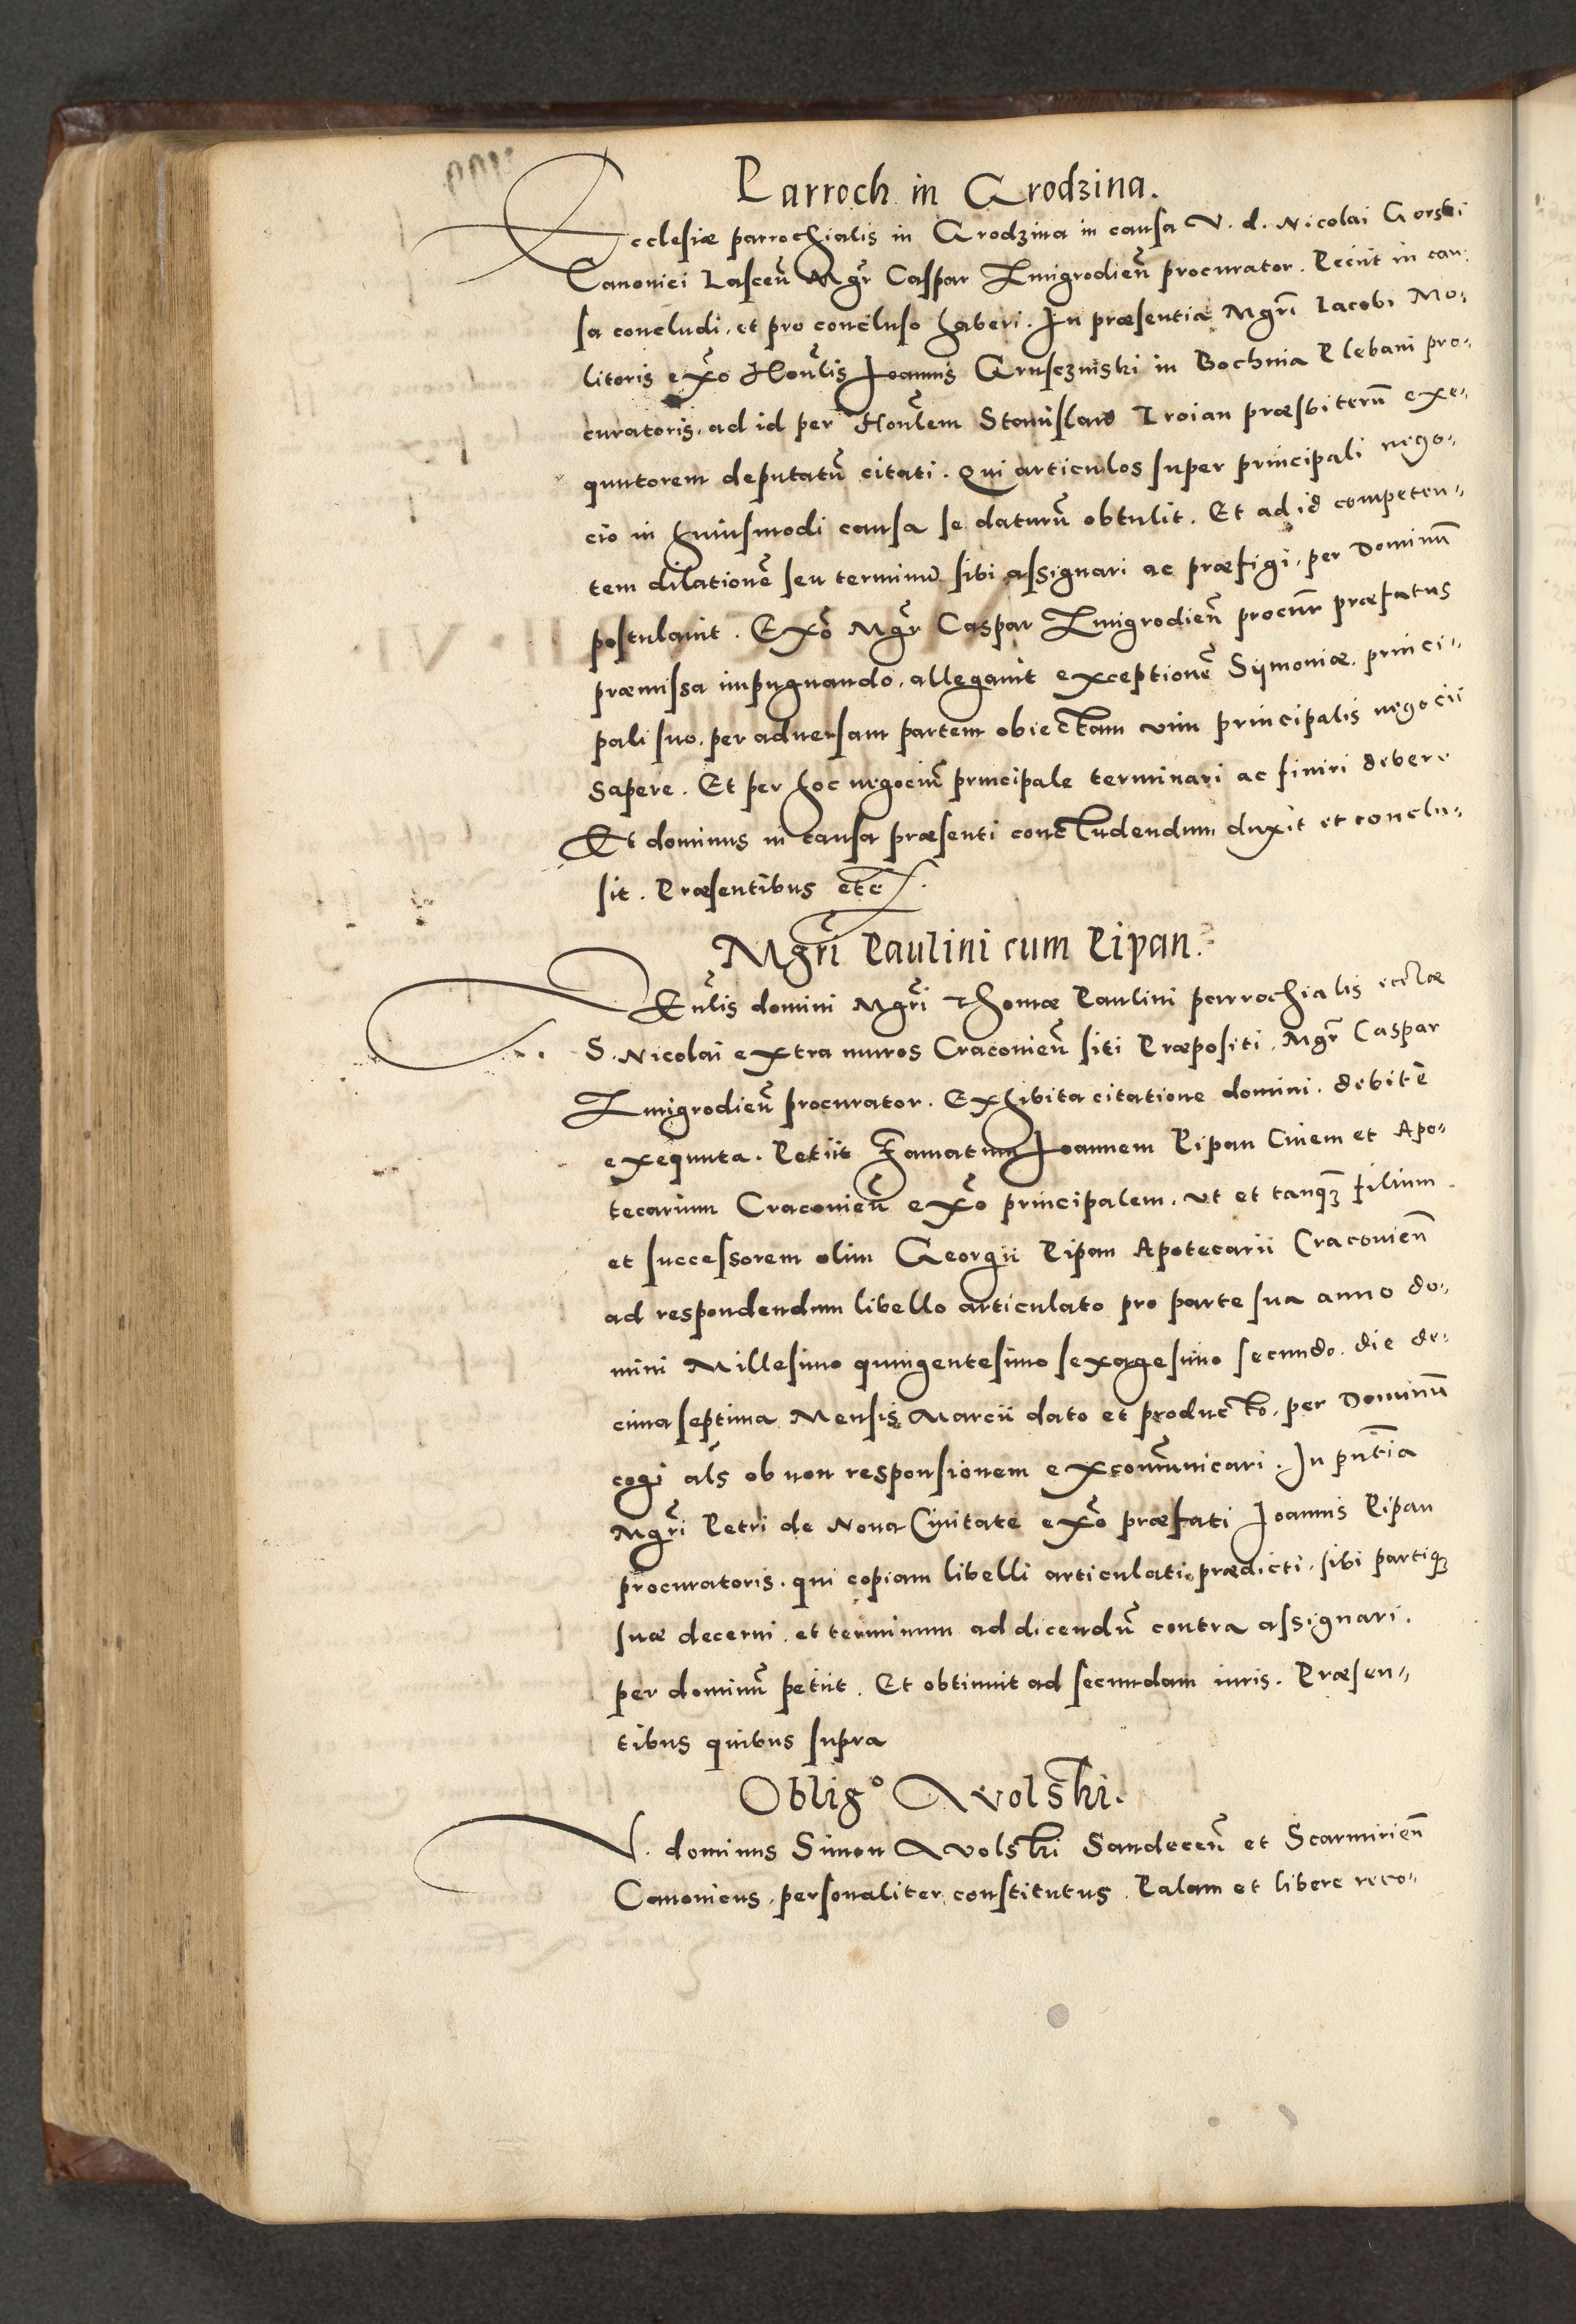 Parroch in Grodzina.
Ecclesiæ parrochialis in Grodzina in causa V. d. Nicolai Gorski
Canonici Lasceñ Mgr̃ Caspar Zmigrodieñ procurator. Petiit in cau:
sa concludi, et pro concluso haberi. In præsentia Mgrĩ Iacobi Mo:
litoris exõ Honl̃is Ioannis Grusczniski in Bochnia Plebani pro:
curatoris, ad id per Honl̃em Stanislaw Troian præsbiterũ exe:
quutorem deputatũ citati. Qui articulos super principali nego:
cio in huiusmodi causa se daturũ obtulit. Et ad id competen:
tem dilationẽ seu terminũ sibi assignari ac præfigi, per Dominũ
postulauit. Exõ Mgr̃ Caspar Zmigrodieñ procur̃ præfatus
præmissa impugnando, allegauit exceptionẽ Symoniæ, princi:
pali suo, per aduersam partem obiectam vim principalis negocii
sapere. Et per hoc negociũ principale terminari ac finiri debere
Et dominus in causa præsenti concludendum duxit et conclu:
sit. Præsentibus etc̃.
Mgrĩ Paulini cum Pipan.
Rñlis domini Mgrĩ Thomæ Paulini parrochialis eccl̃iæ
S. Nicolai extra muros Cracouieñ siti Præpositi, Mgr̃ Caspar
Zmigrodieñ procurator. Exhibita citatione domini, debite
exequuta. Petiit Famatum Ioannem Pipan Ciuem et Apo:
tecarium Cracouieñ exõ principalem, vt et tanqꝫ filium
et successorem olim Georgii Pipan Apotecarii Cracouieñ
ad respondendum libello articulato pro parte sua anno do:
mini Millesimo quingentesimo sexagesimo secundo, die de:
cima septima Mensis Marcii dato et producto, per Dominũ
cogi al̃s ob non responsionem excom̃unicari. In pñtia
Mgrĩ Petri de Noua Ciuitate exõ præfati Ioannis Pipan
procuratoris, qui copiam libelli articulati prædicti, sibi partiqꝫ
suæ decerni, et terminum ad dicendũ contra assignari,
per dominũ petiit. Et obtinuit ad secundam iuris. Præsen:
tibus quibus supra
Obligº Wolski.
V. dominus Simon Wolski Sandeceñ et Scarmirieñ
Canonicus, personaliter constitutus. Palam et libere reco: